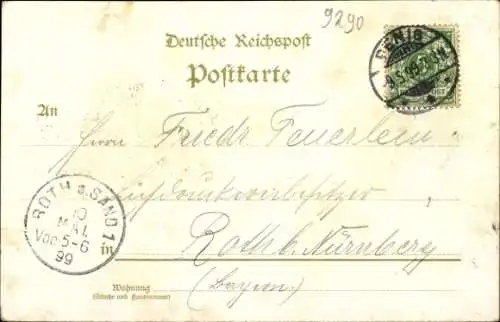 9290
Deutsche Reichspost
Postkarte
An
Herrn Friedr Feuerlein
Lichtdruckwerkbesitzer
in Roth b. Nürnberg
Wohnung (Bayern)
(Straße und Hausnummer)
ROTH a. SAND 1
10
MAI.
Vor 5-6
99